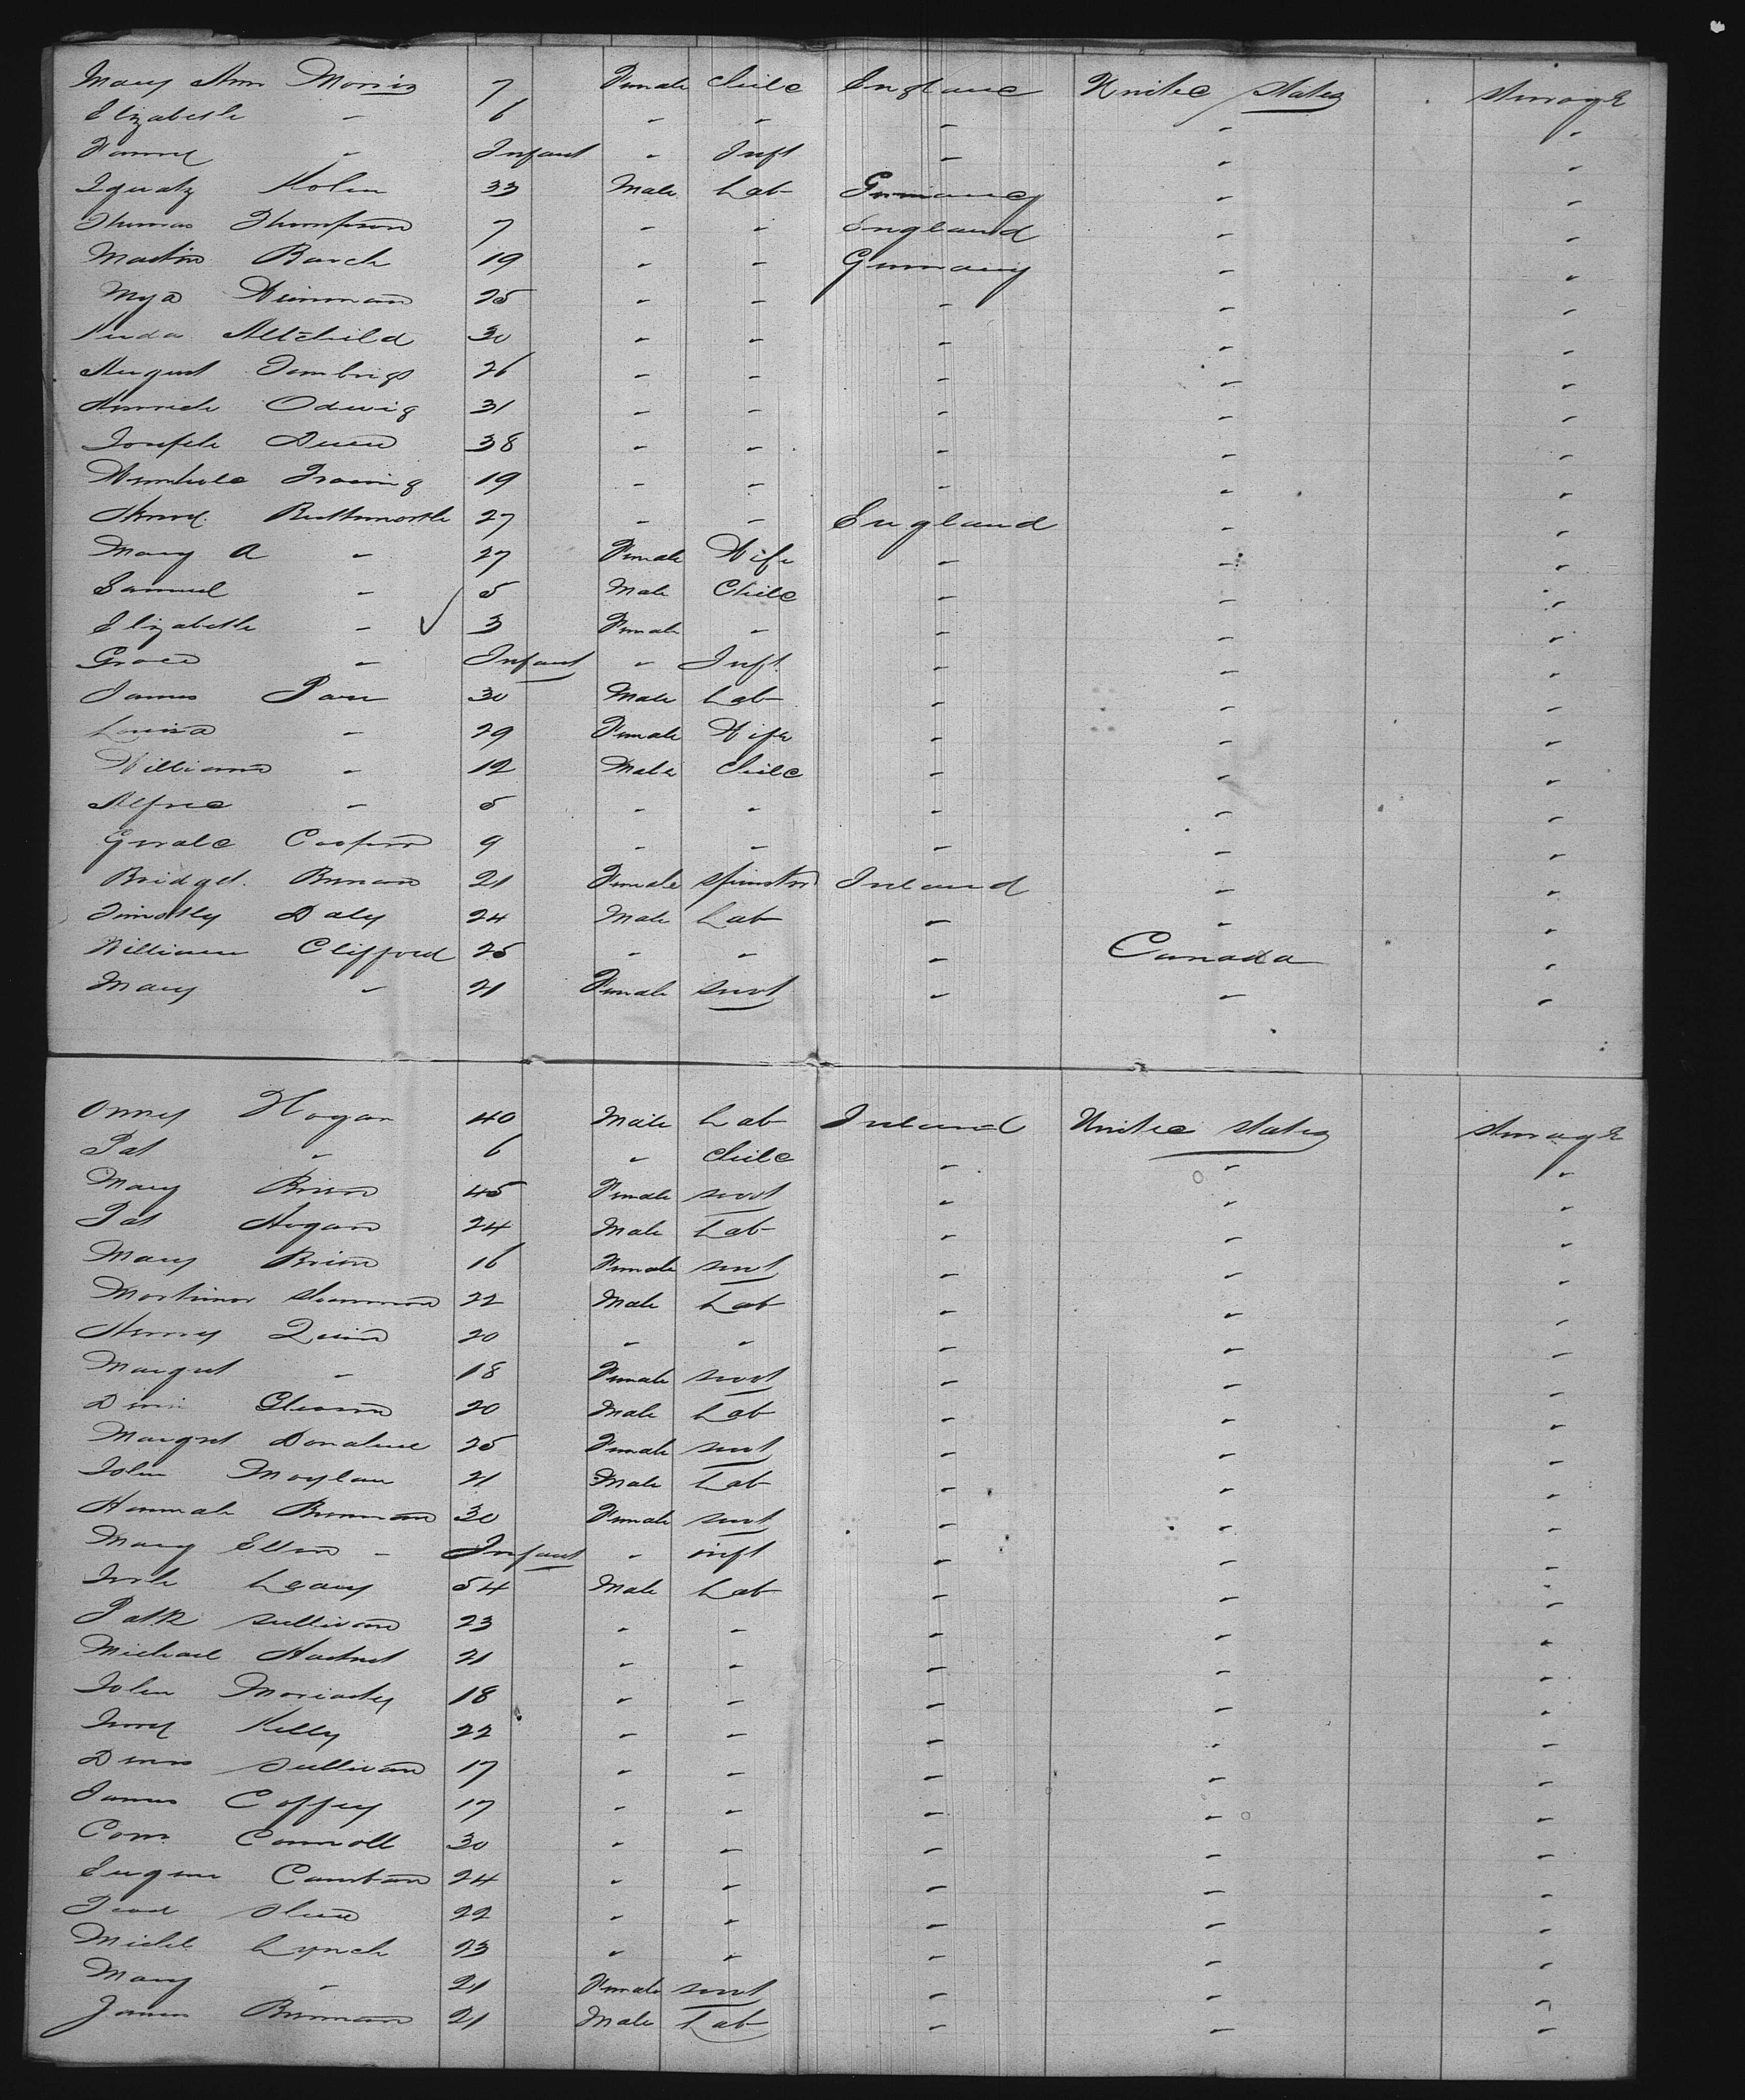 Mary Ann Morris 7 Female Child England United States Steerage
Elizabeth " 6 " " " " "
Fanny " Infant " Inft " " "
Ignatz Kolm 33 Male Lab Germany " "
Thomas Thompson 7 " " England " "
Martin Barch 19 " " Germany " "
25 " " " " "
30 " " " " "
August 26 " " " " "
Odwig 31 " " " " "
Joseph 38 " " " " "
19 " " " " "
Henry Butterworth 27 " " England " "
Mary A " 27 Female Wife " " "
Samuel " 5 Male Child " " "
Elizabeth " 3 Female " " " "
Grace " Infant " Inft " " "
James Parr 30 Male Lab " " "
Louisa " 29 Female Wife " " "
William " 12 Male Child " " "
Alfred " 5 " " " " "
Gerald Cooper 9 " " " " "
Bridget Brenan 21 Female Spinster Ireland " "
Timothy Daly 24 Male Lab " " "
William Clifford 25 " " " Canada "
Mary " 21 Female Servt " " "
Hogan 40 Male Lab Ireland United States Steerage
Pat " 6 " Child " " "
Mary Brien 45 Female Servt " " "
Pat Hogan 24 Male Lab " " "
Mary Brien 16 Female Servt " " "
Mortimor 22 Male Lab " " "
Henry Quinn 20 " " " " "
Margret " 18 Female Servt " " "
Gleeson 20 Male Lab " " "
Margret Donahue 25 Female Servt " " "
John Moylan 21 Male Lab " " "
Hannah Brennan 30 Female Servt " " "
Mary Ellen " Infant " inft " " "
Leary 54 Male Lab " " "
Patk Sullivan 23 " " " " "
Michael Hartnet 21 " " " " "
John Moriarty 18 " " " " "
Kelly 22 " " " " "
Denis Sullivan 17 " " " " "
James Coffey 17 " " " " "
Corns Connell 30 " " " " "
Eugene 24 " " " " "
Shea 22 " " " " "
Michl Lynch 23 " " " " "
Mary " 21 Female Servt " " "
James Brennan 21 Male Lab " " "